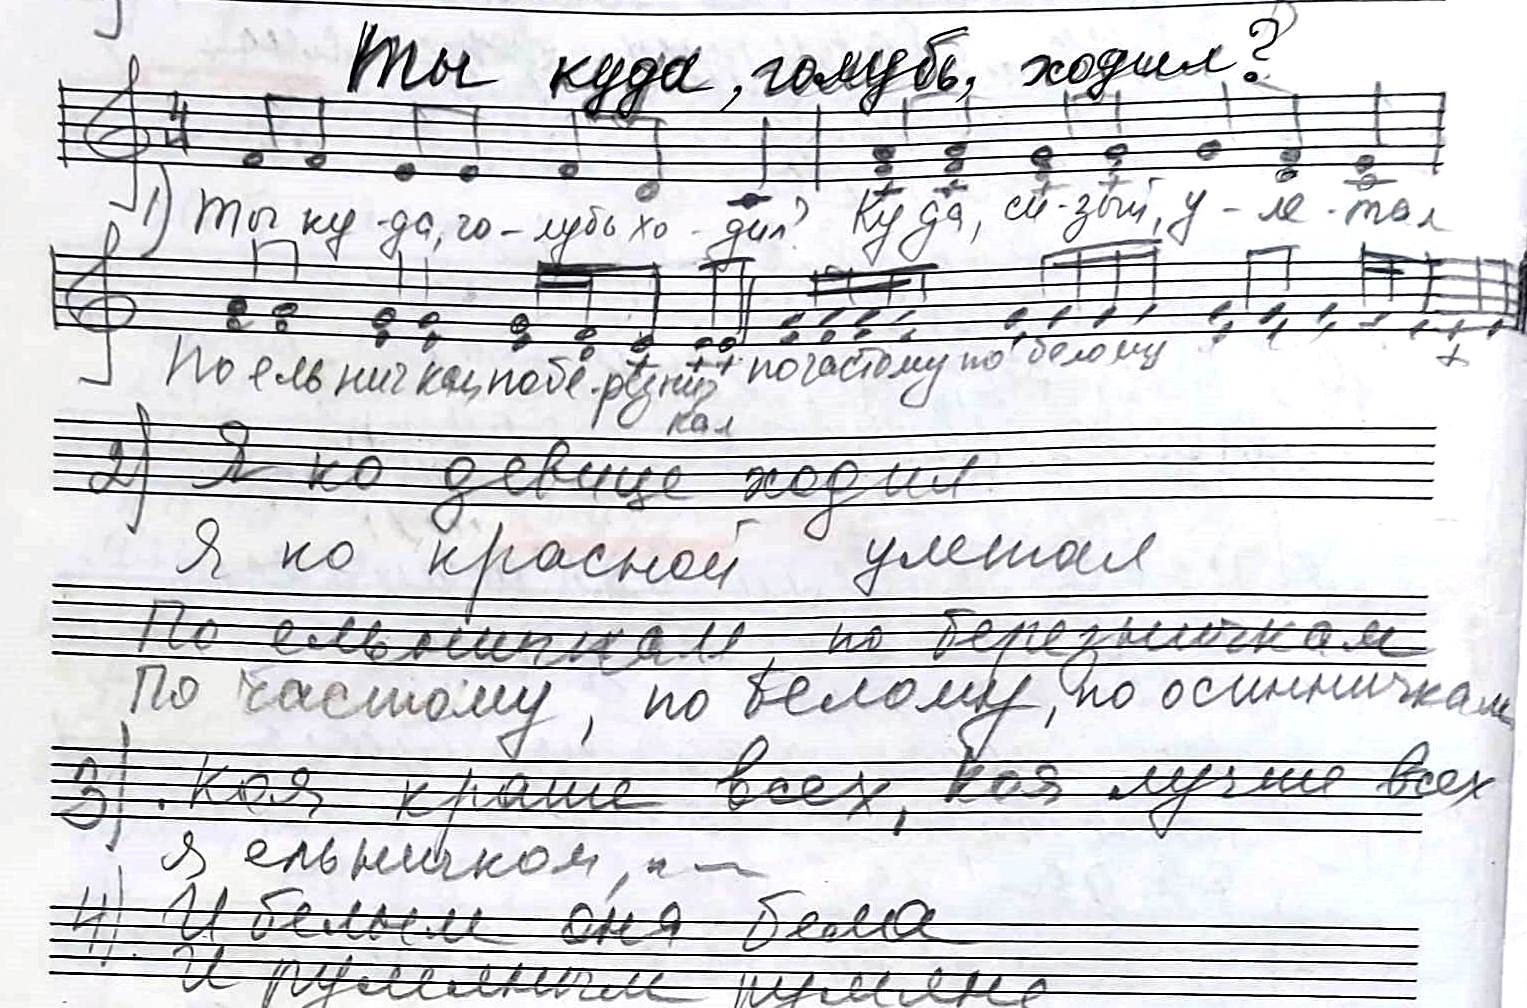 Ты куда, голубь, ходил?
4 4
1) Ты ку-да, го-лубь хо-дил? Куда, си-зый, у-ле-тал
По ельничкам, по бе-резнич кам по частому по белому
2) Я ко девице ходил
Я ко красной улетал
По ельничкам, по березничкам
По частому, по белому, по осинничкам
3) Коя краше всех, коя лучше всех
Я ельничком, "—
4) И белым она бела
И румяным румяна